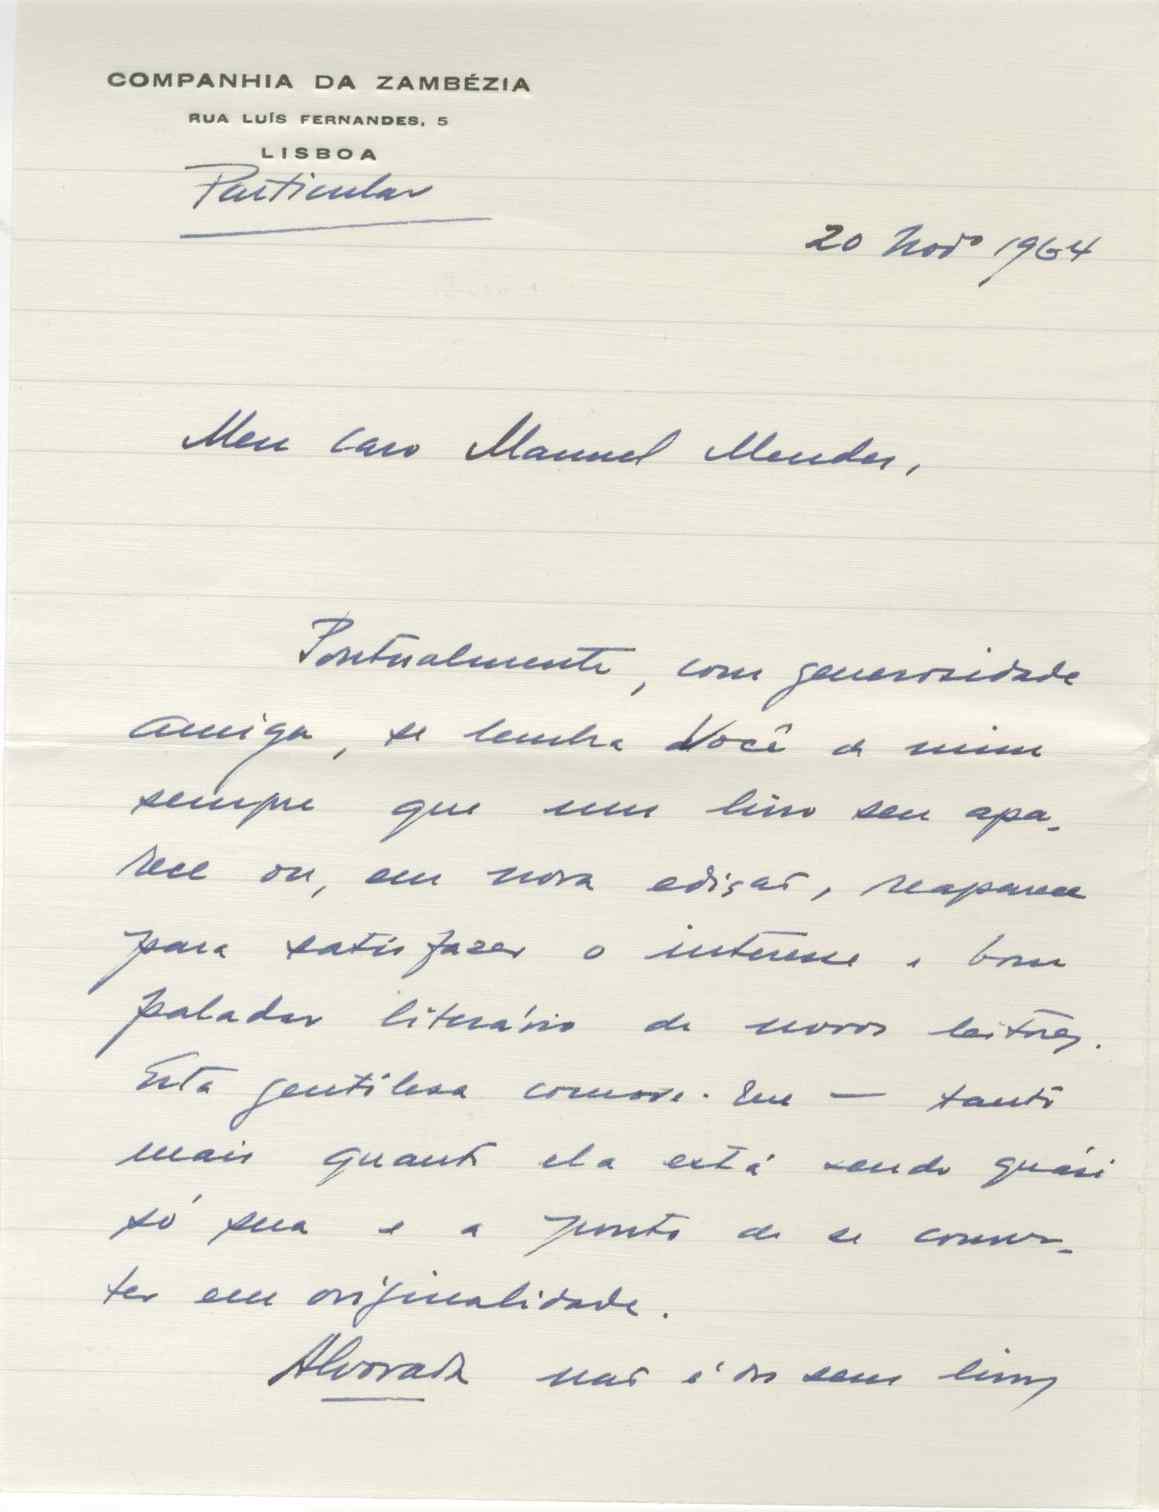 COMPANHIA DA ZAMBÉZIA
RUA LUÍS FERNANDES, 5
LISBOA
Particular
20 Novº 1964
Meu caro Manuel Mendes,
Pontualmente, com generosidade
amiga, se lembra Você de mim
sempre que um livro seu apa-
rece ou, em nova edição, reaparece
para satisfazer o interesse e bom
paladar literário de novos leitores.
Esta gentilesa comove-me — tanto
mais quanto ela está sendo quási
só sua e a ponto de se conver-
ter em originalidade.
Alvorada não é dos seus livros